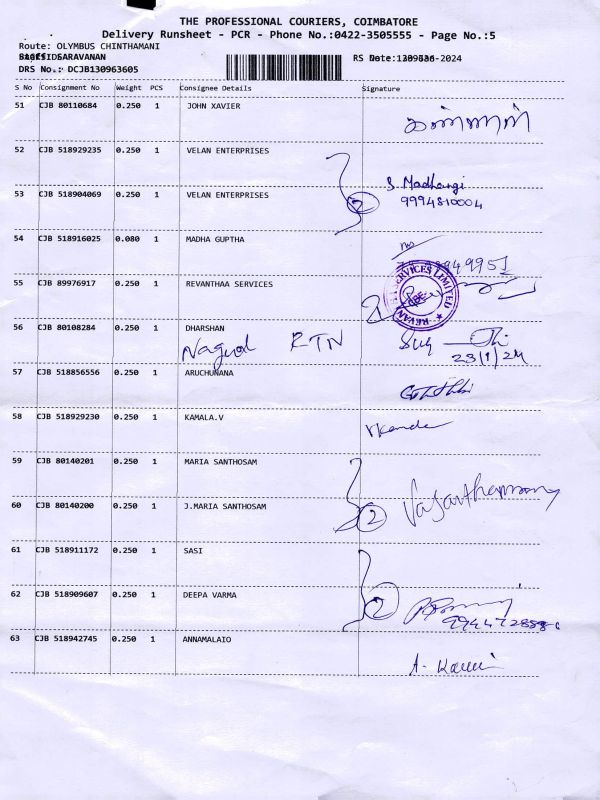 THE PROFESSIONAL COURIERS, COIMBATORE
Delivery Runsheet - PCR - Phone No.:0422-3505555 - Page No.:5
Route: OLYMBUS CHINTHAMANI
SARAVANAN
DRS No.: DCJB130963605
RS Date: -2024
S No Consignment No Weight PCS Consignee Details Signature
51 CJB 80110684 0.250 1 JOHN XAVIER
52 CJB 518929235 0.250 1 VELAN ENTERPRISES
53 CJB 518904069 0.250 1 VELAN ENTERPRISES
2 S. Madhangi
9994810004
54 CJB 518916025 0.080 1 MADHA GUPTHA
949951
55 CJB 89976917 0.250 1 REVANTHAA SERVICES
SERVICES LIMITED ★ REVAN
56 CJB 80108284 0.250 1 DHARSHAN
RTN
23/1/24
57 CJB 518856556 0.250 1 ARUCHUNANA
58 CJB 518929230 0.250 1 KAMALA.V
59 CJB 80140201 0.250 1 MARIA SANTHOSAM
60 CJB 80140200 0.250 1 J.MARIA SANTHOSAM
2
61 CJB 518911172 0.250 1 SASI
62 CJB 518909607 0.250 1 DEEPA VARMA
2
63 CJB 518942745 0.250 1 ANNAMALAIO